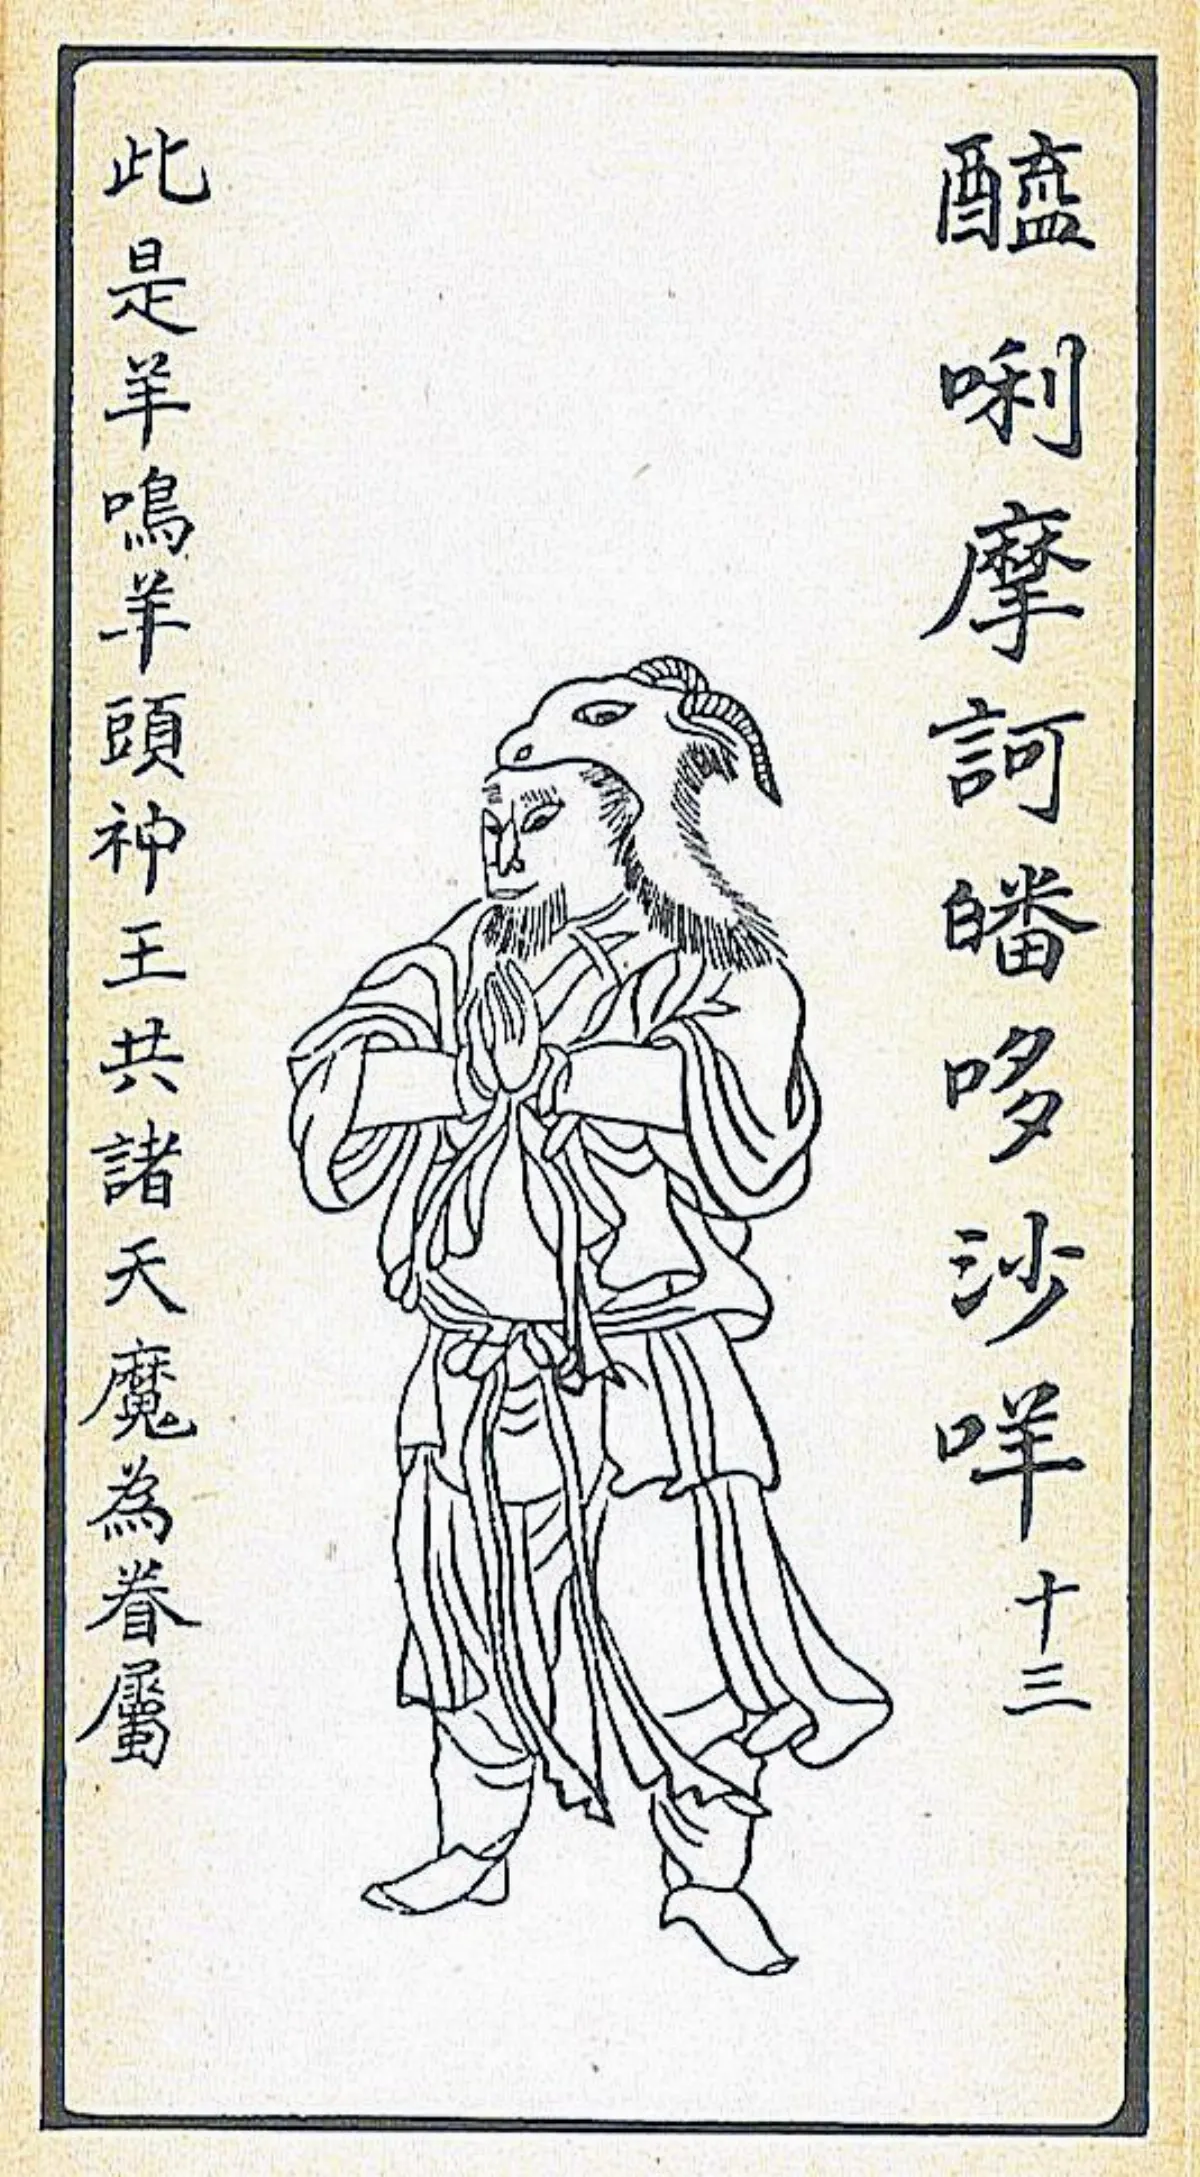 醯唎摩訶皤哆沙咩十三
此是羊鳴羊頭神王共諸天魔為眷屬